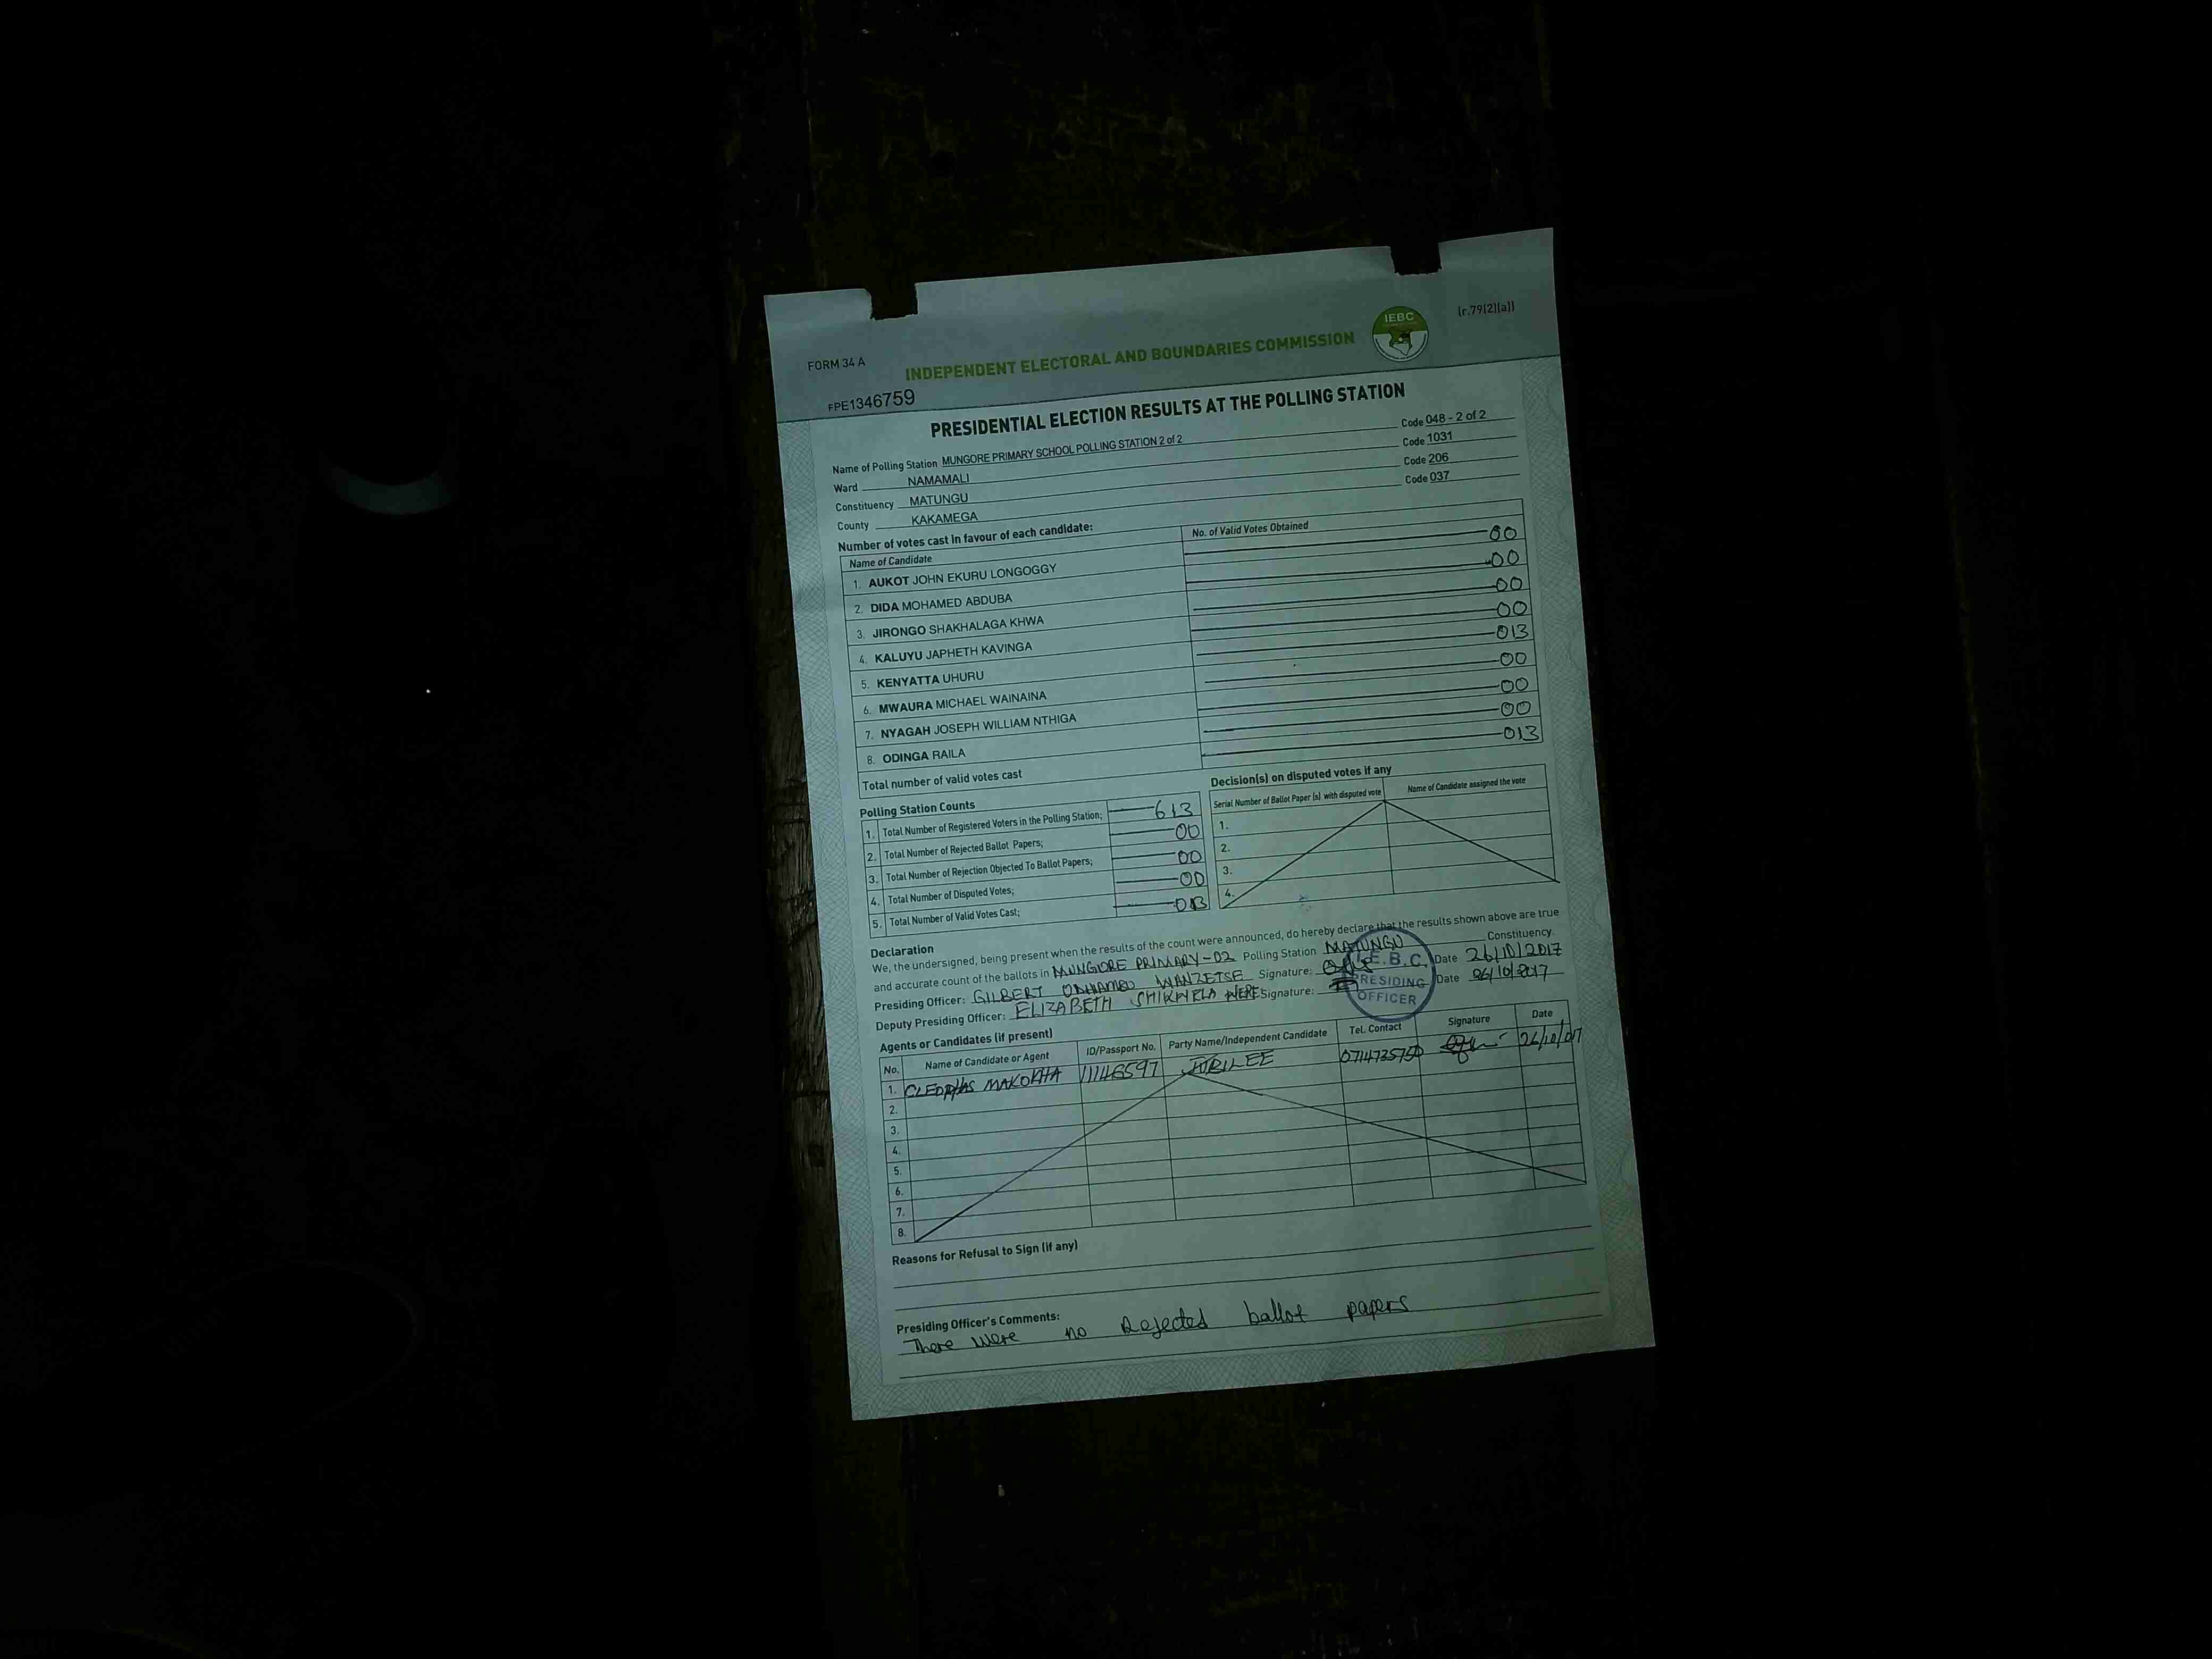 (r.79(2)(a))
FORM 34 A
INDEPENDENT ELECTORAL AND BOUNDARIES COMMISSION
IEBC
FPE1346759
PRESIDENTIAL ELECTION RESULTS AT THE POLLING STATION
Name of Polling Station MUNGORE PRIMARY SCHOOL POLLING STATION 2 of 2 Code 048 - 2 of 2
Ward NAMAMALI Code 1031
Constituency MATUNGU Code 206
County KAKAMEGA Code 037
Number of votes cast in favour of each candidate:
Name of Candidate No. of Valid Votes Obtained
1. AUKOT JOHN EKURU LONGOGGY 00
2. DIDA MOHAMED ABDUBA 00
3. JIRONGO SHAKHALAGA KHWA 00
4. KALUYU JAPHETH KAVINGA 00
5. KENYATTA UHURU 013
6. MWAURA MICHAEL WAINAINA 00
7. NYAGAH JOSEPH WILLIAM NTHIGA 00
8. ODINGA RAILA 00
Total number of valid votes cast 013
Polling Station Counts
1. Total Number of Registered Voters in the Polling Station; 613
2. Total Number of Rejected Ballot Papers; 00
3. Total Number of Rejection Objected To Ballot Papers; 00
4. Total Number of Disputed Votes; 00
5. Total Number of Valid Votes Cast; 013
Decision(s) on disputed votes if any
Serial Number of Ballot Paper (s) with disputed vote Name of Candidate assigned the vote
1.
2.
3.
4.
Declaration
We, the undersigned, being present when the results of the count were announced, do hereby declare that the results shown above are true
and accurate count of the ballots in MUNGORE PRIMARY-02 Polling Station MATUNGU Constituency.
Presiding Officer: GILBERT WANZETSE Signature: Date 26/10/2017
Deputy Presiding Officer: ELIZABETH WERE Signature: Date 26/10/2017
I.E.B.C.
PRESIDING
OFFICER
Agents or Candidates (if present)
No. Name of Candidate or Agent ID/Passport No. Party Name/Independent Candidate Tel. Contact Signature Date
1. CLEOPHAS MAKOKHA 11146597 JUBILEE 0714735750 26/10/017
2.
3.
4.
5.
6.
7.
8.
Reasons for Refusal to Sign (if any)
Presiding Officer's Comments:
There were no Rejected ballot papers